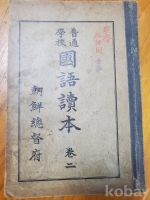 普通
學校
國語讀本 卷二
朝鮮總督府
kobay